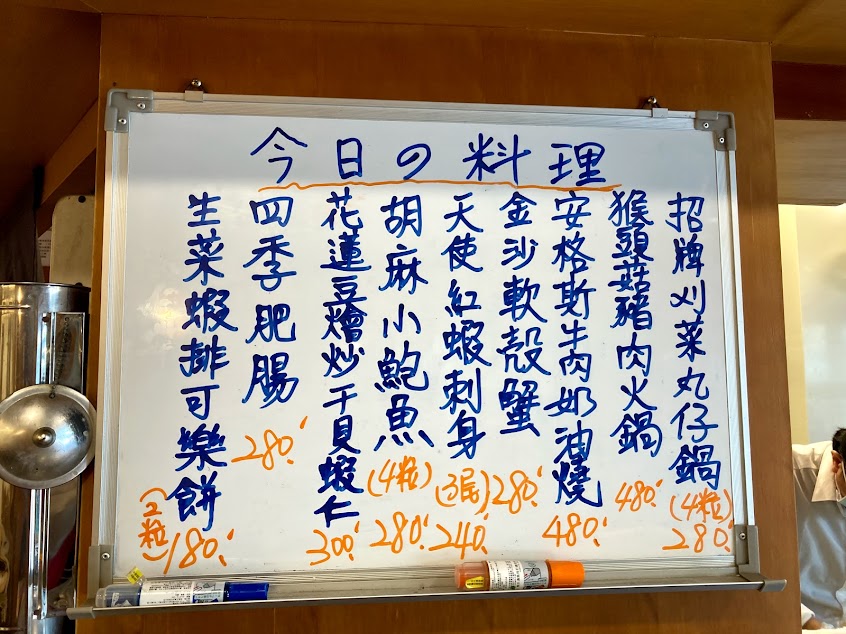 今日の料理
招牌刈菜丸仔鍋(4粒)280.
猴頭菇豬肉火鍋480.
安格斯牛肉奶油燒480.
金沙軟殼蟹280.
天使紅蝦刺身(3尾)240.
胡麻小鮑魚(4粒)280.
花蓮豆燴炒干貝蝦仁300.
四季肥腸280.
生菜蝦排可樂餅(2粒)180.